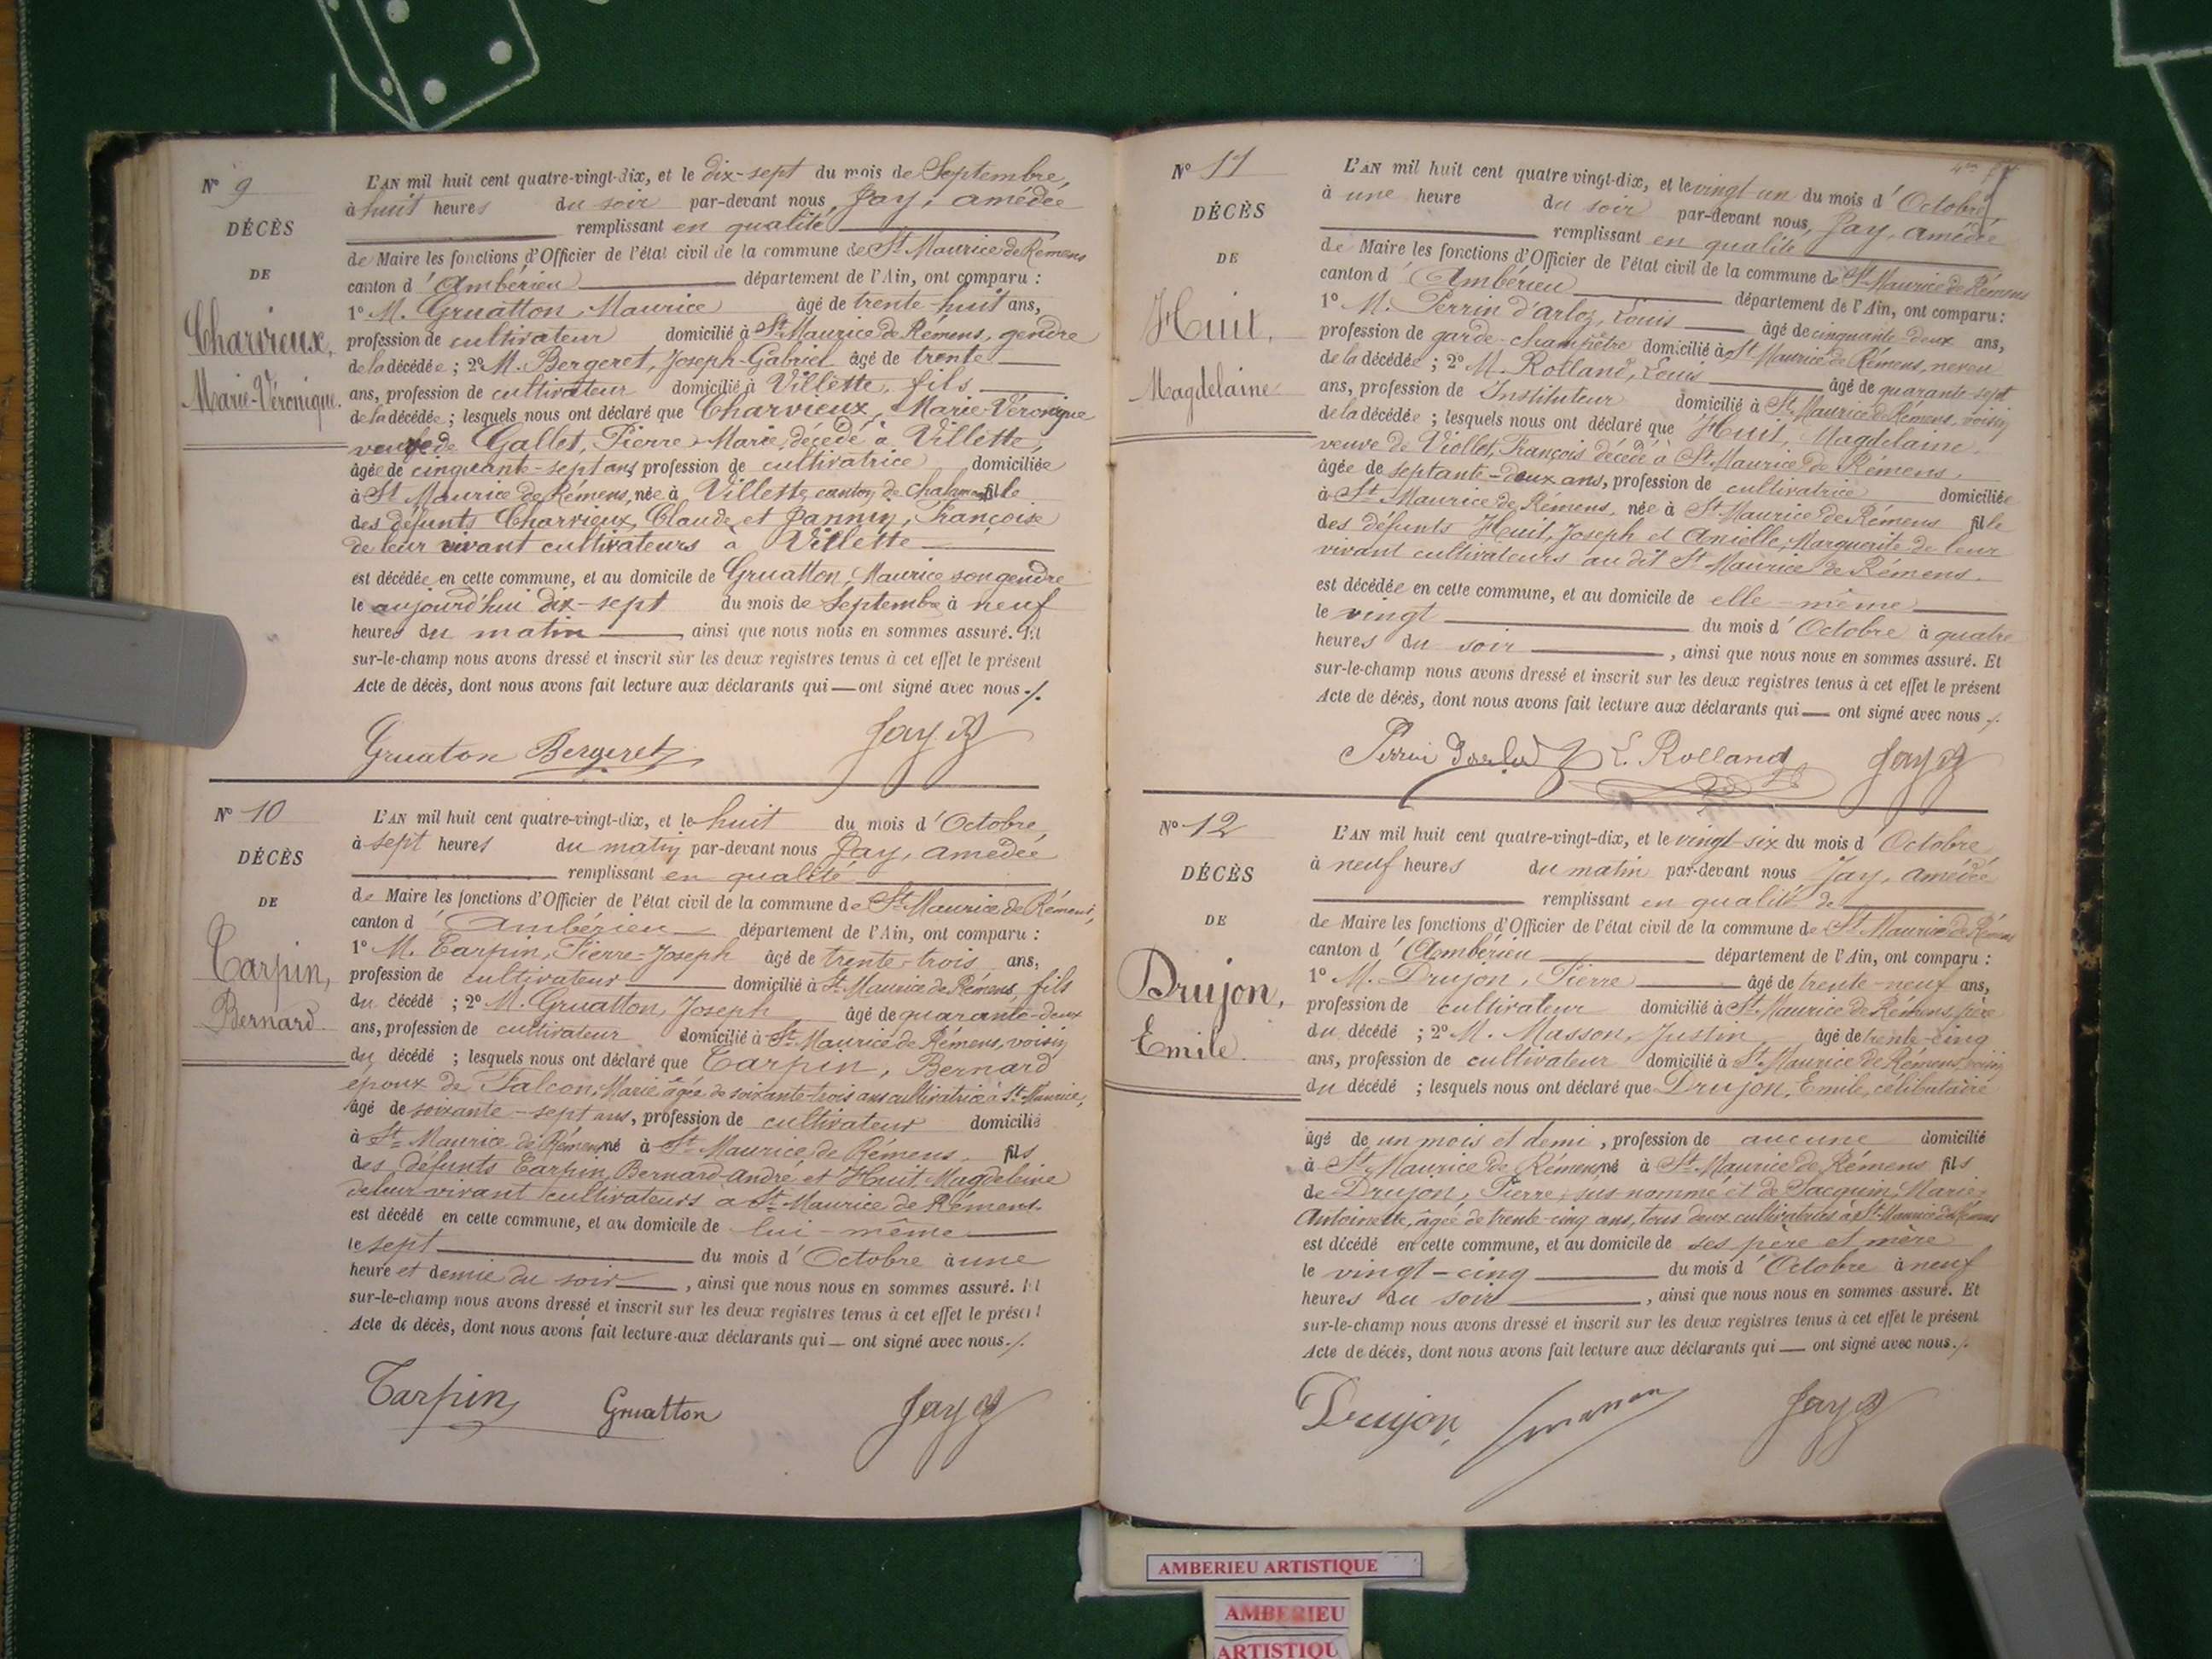 Nº 9
DÉCÈS
DE
Charvieux,
Marie-Véronique.
L'AN mil huit cent quatre-vingt-dix, et le dix-sept du mois de Septembre,
à huit heures du soir par-devant nous, Jay, amédée
remplissant en qualité
de Maire les fonctions d'Officier de l'état civil de la commune de St Maurice de Rémens
canton d'Ambérieu département de l'Ain, ont comparu :
1º M. Gruatton, Maurice âgé de trente-huit ans,
profession de cultivateur domicilié à St Maurice de Rémens, gendre
de la décédée ; 2º M. Bergeret, Joseph-Gabriel âgé de trente
ans, profession de cultivateur domicilié à Villette, fils
de la décédée ; lesquels nous ont déclaré que Charvieux, Marie-Véronique
veuve de Gallet, Pierre-Marie, décédé à Villette,
âgée de cinquante-sept ans, profession de cultivatrice domiciliée
à St Maurice de Rémens, née à Villette, canton de Chalamont fille
des défunts Charvieux, Claude et Jannin, Françoise
de leur vivant cultivateurs à Villette
est décédée en cette commune, et au domicile de Gruatton, Maurice son gendre
le aujourd'hui dix-sept du mois de Septembre à neuf
heures du matin, ainsi que nous nous en sommes assuré. Et
sur-le-champ nous avons dressé et inscrit sur les deux registres tenus à cet effet le présent
Acte de décès, dont nous avons fait lecture aux déclarants qui — ont signé avec nous ./.
Gruaton Bergeret Jay A
Nº 10
DÉCÈS
DE
Tarpin,
Bernard.
L'AN mil huit cent quatre-vingt-dix, et le huit du mois d'Octobre,
à sept heures du matin par-devant nous Jay, amédée
remplissant en qualité
de Maire les fonctions d'Officier de l'état civil de la commune de St Maurice de Rémens,
canton d'Ambérieu département de l'Ain, ont comparu :
1º M. Tarpin, Pierre-Joseph âgé de trente-trois ans,
profession de cultivateur domicilié à St Maurice de Rémens, fils
du décédé ; 2º M. Gruatton, Joseph âgé de quarante-deux
ans, profession de cultivateur domicilié à St Maurice de Rémens, voisin
du décédé ; lesquels nous ont déclaré que Tarpin, Bernard
époux de Falcon, Marie âgée de soixante-trois ans cultivatrice à St Maurice,
âgé de soixante-sept ans, profession de cultivateur domicilié
à St Maurice de Rémens né à St Maurice de Rémens, fils
des défunts Tarpin, Bernard-André et Huit Magdeleine
de leur vivant cultivateurs à St Maurice de Rémens.
est décédé en cette commune, et au domicile de lui-même
le sept du mois d'Octobre à une
heure et demie du soir, ainsi que nous nous en sommes assuré. Et
sur-le-champ nous avons dressé et inscrit sur les deux registres tenus à cet effet le présent
Acte de décès, dont nous avons fait lecture aux déclarants qui — ont signé avec nous ./.
Tarpin Gruatton Jay A
Nº 11
DÉCÈS
DE
Huit,
Magdelaine
L'AN mil huit cent quatre vingt-dix, et le vingt un du mois d'Octobre,
à une heure du soir par-devant nous, Jay, amédée
remplissant en qualité
de Maire les fonctions d'Officier de l'état civil de la commune de St Maurice de Rémens
canton d'Ambérieu département de l'Ain, ont comparu :
1º M. Perrin d'arloz, Louis âgé de cinquante-deux ans,
profession de garde-champêtre domicilié à St Maurice de Rémens, neveu
de la décédée ; 2º M. Rolland, Louis âgé de quarante-sept
ans, profession de Instituteur domicilié à St Maurice de Rémens, voisin
de la décédée ; lesquels nous ont déclaré que Huit, Magdelaine
veuve de Viollet, François décédé à St Maurice de Rémens,
âgée de septante-deux ans, profession de cultivatrice domiciliée
à St Maurice de Rémens, née à St Maurice de Rémens fille
des défunts Huit, Joseph et Anielle, Marguerite de leur
vivant cultivateurs au dit St Maurice de Rémens.
est décédée en cette commune, et au domicile de elle-même
le vingt du mois d'Octobre à quatre
heures du soir, ainsi que nous nous en sommes assuré. Et
sur-le-champ nous avons dressé et inscrit sur les deux registres tenus à cet effet le présent
Acte de décès, dont nous avons fait lecture aux déclarants qui — ont signé avec nous ./.
Perrin L. Rolland Jay A
Nº 12
DÉCÈS
DE
Drujon,
Emile.
L'AN mil huit cent quatre-vingt-dix, et le vingt-six du mois d'Octobre,
à neuf heures du matin par-devant nous Jay, amédée
remplissant en qualité de
de Maire les fonctions d'Officier de l'état civil de la commune de St Maurice de Rémens
canton d'Ambérieu département de l'Ain, ont comparu :
1º M. Drujon, Pierre âgé de trente-neuf ans,
profession de cultivateur domicilié à St Maurice de Rémens, père
du décédé ; 2º M. Masson, Justin âgé de trente-cinq
ans, profession de cultivateur domicilié à St Maurice de Rémens, voisin
du décédé ; lesquels nous ont déclaré que Drujon, Emile, célibataire
âgé de un mois et demi, profession de aucune domicilié
à St Maurice de Rémens, né à St Maurice de Rémens fils
de Drujon, Pierre, sus-nommé et de Jacquin, Marie-
Antoinette, âgée de trente-cinq ans, tous deux cultivateurs à St Maurice de Rémens
est décédé en cette commune, et au domicile de ses père et mère
le vingt-cinq du mois d'Octobre à neuf
heures du soir, ainsi que nous nous en sommes assuré. Et
sur-le-champ nous avons dressé et inscrit sur les deux registres tenus à cet effet le présent
Acte de décès, dont nous avons fait lecture aux déclarants qui — ont signé avec nous ./.
Drujon Jay A
AMBERIEU ARTISTIQUE
AMBERIEU
ARTISTIQU